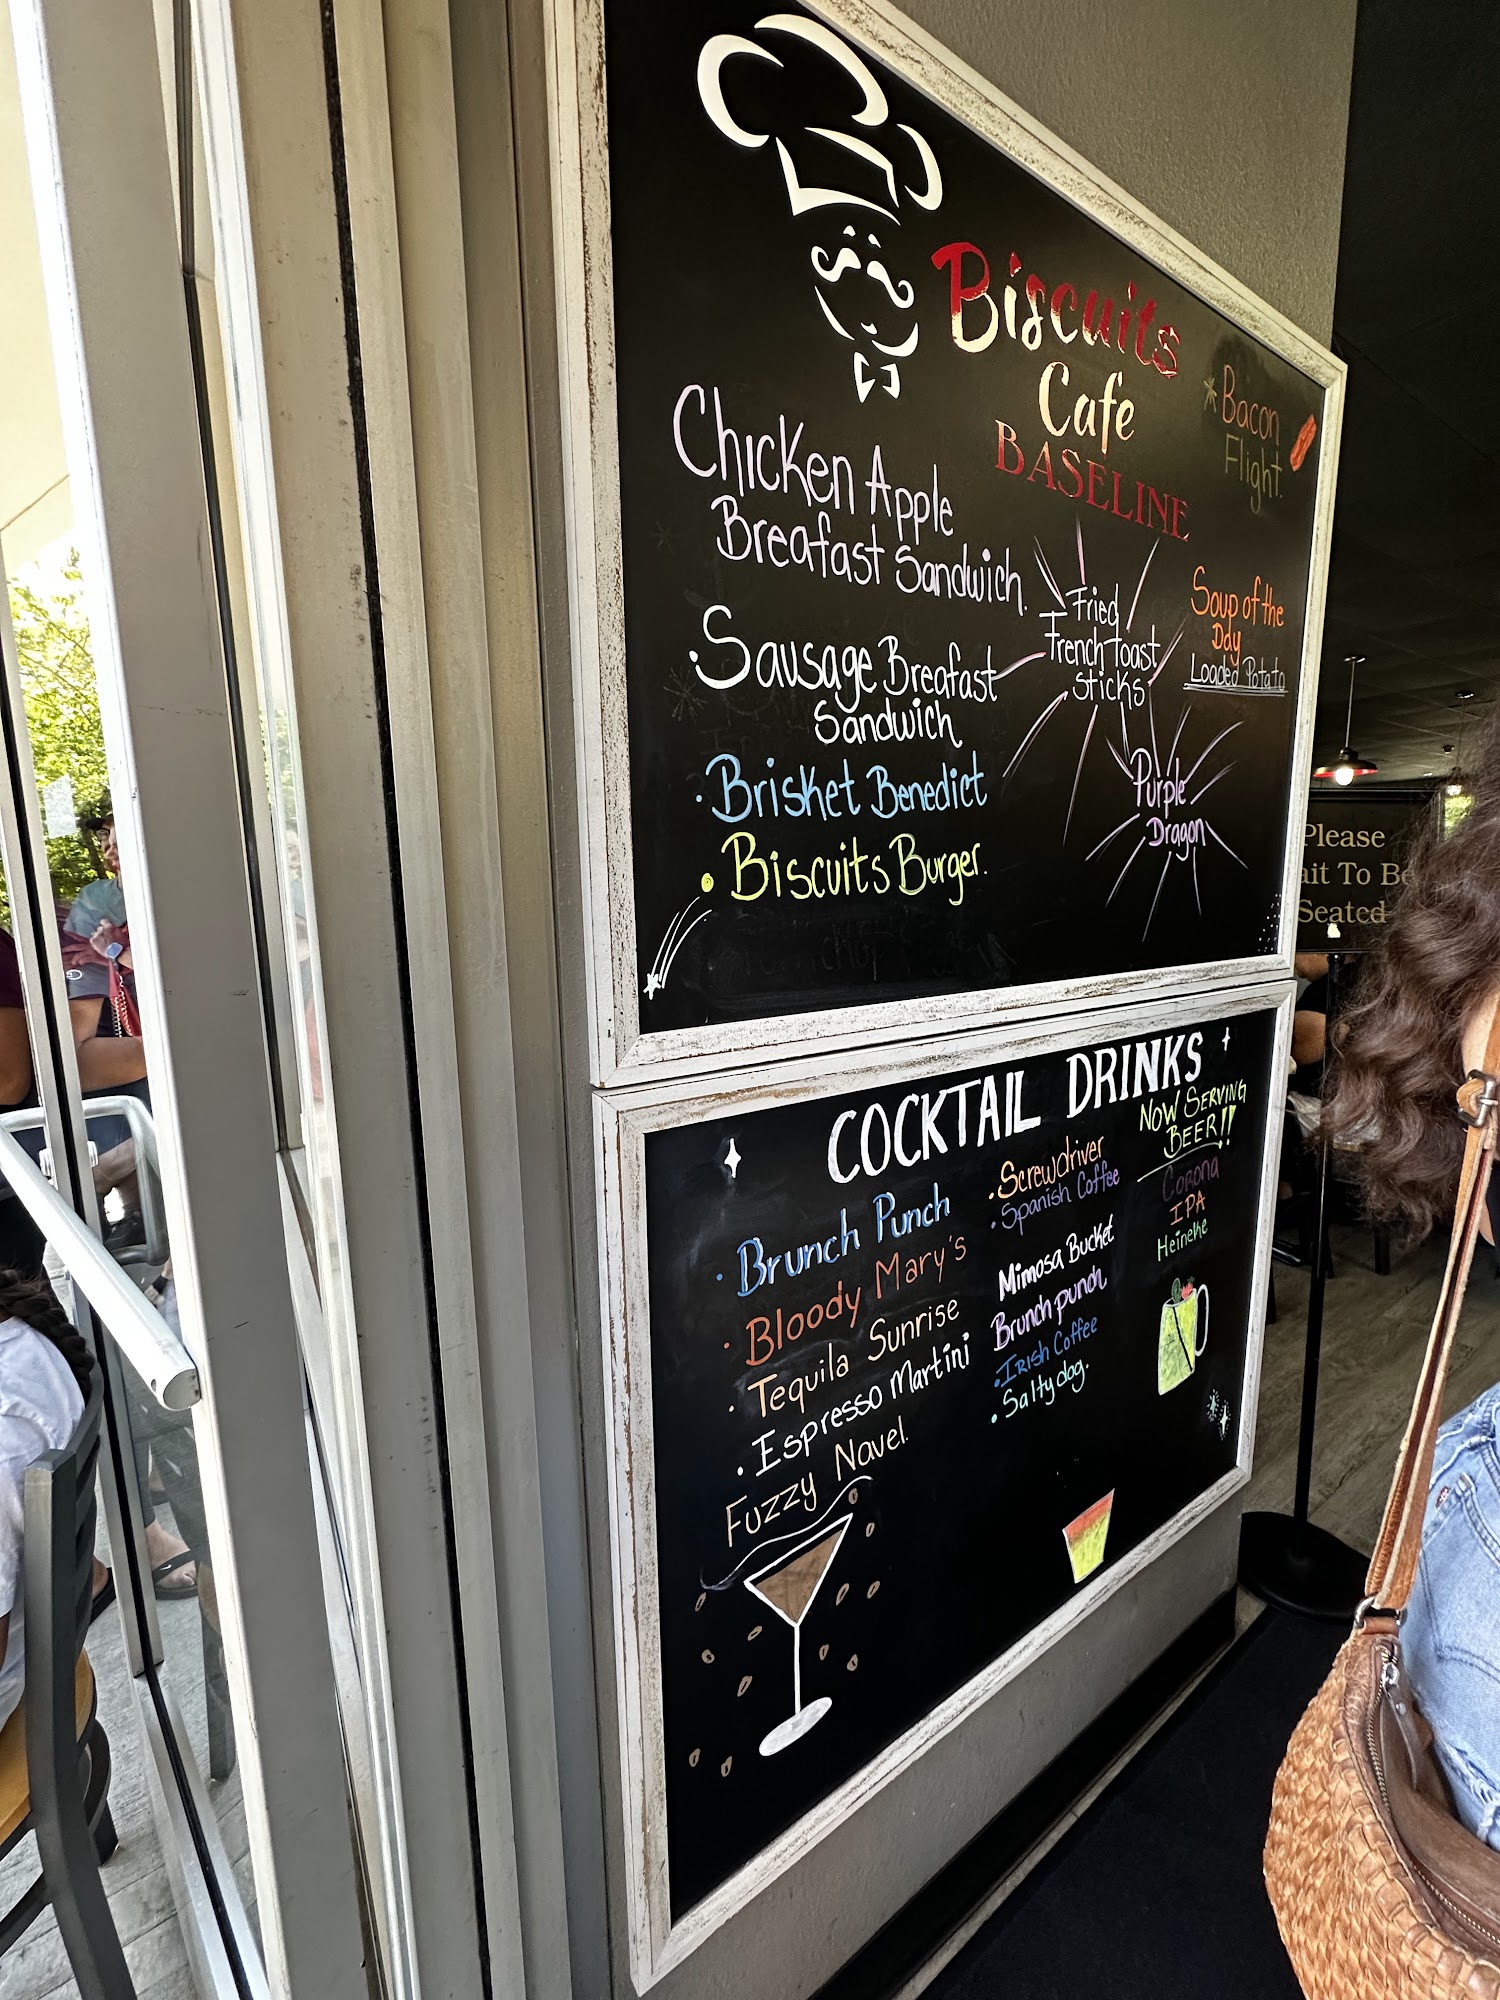 Biscuits
Cafe
BASELINE
* Bacon
Flight.
Chicken Apple
Breafast Sandwich.
• Sausage Breafast
Sandwich
• Brisket Benedict
• Biscuits Burger.
Fried
French toast
sticks
Soup of the
Day
Loaded Potato
Purple
Dragon
Please
ait To Be
Seated
COCKTAIL DRINKS
• Brunch Punch
• Bloody Mary's
• Tequila Sunrise
• Espresso Martini
Fuzzy Navel.
• Screwdriver
• Spanish Coffee
Mimosa Bucket
Brunch punch
• Irish Coffee
• Salty dog.
NOW SERVING
BEER!!
Corona
IPA
Heineke